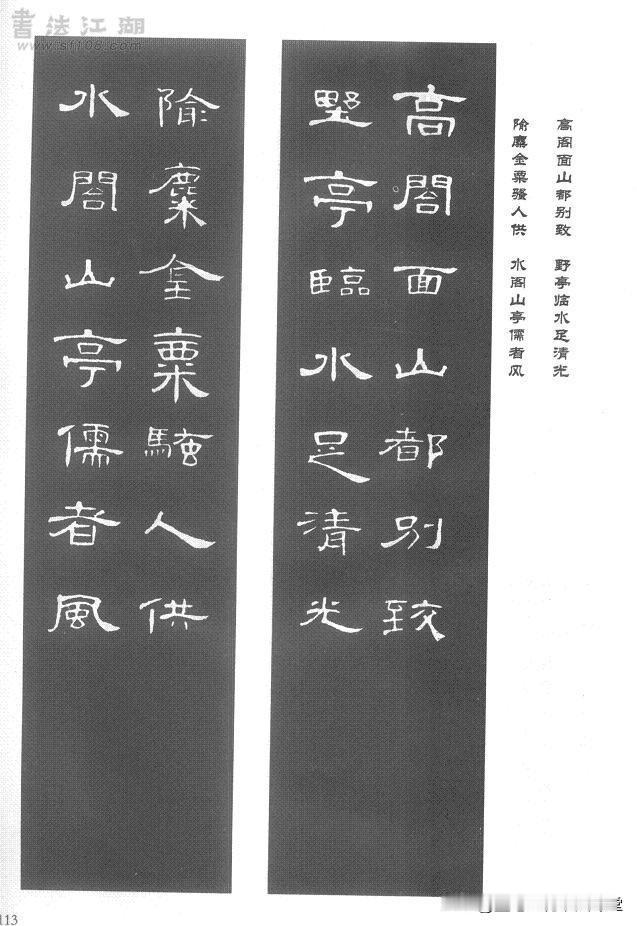 書法江湖
www.sf108.com
高阁面山都别致 野亭临水足清光
隃麋金粟骚人供 水阁山亭儒者风
高閤面山都別致
墅亭臨水足清光
隃麋金粟騷人供
水閤山亭儒者風
113